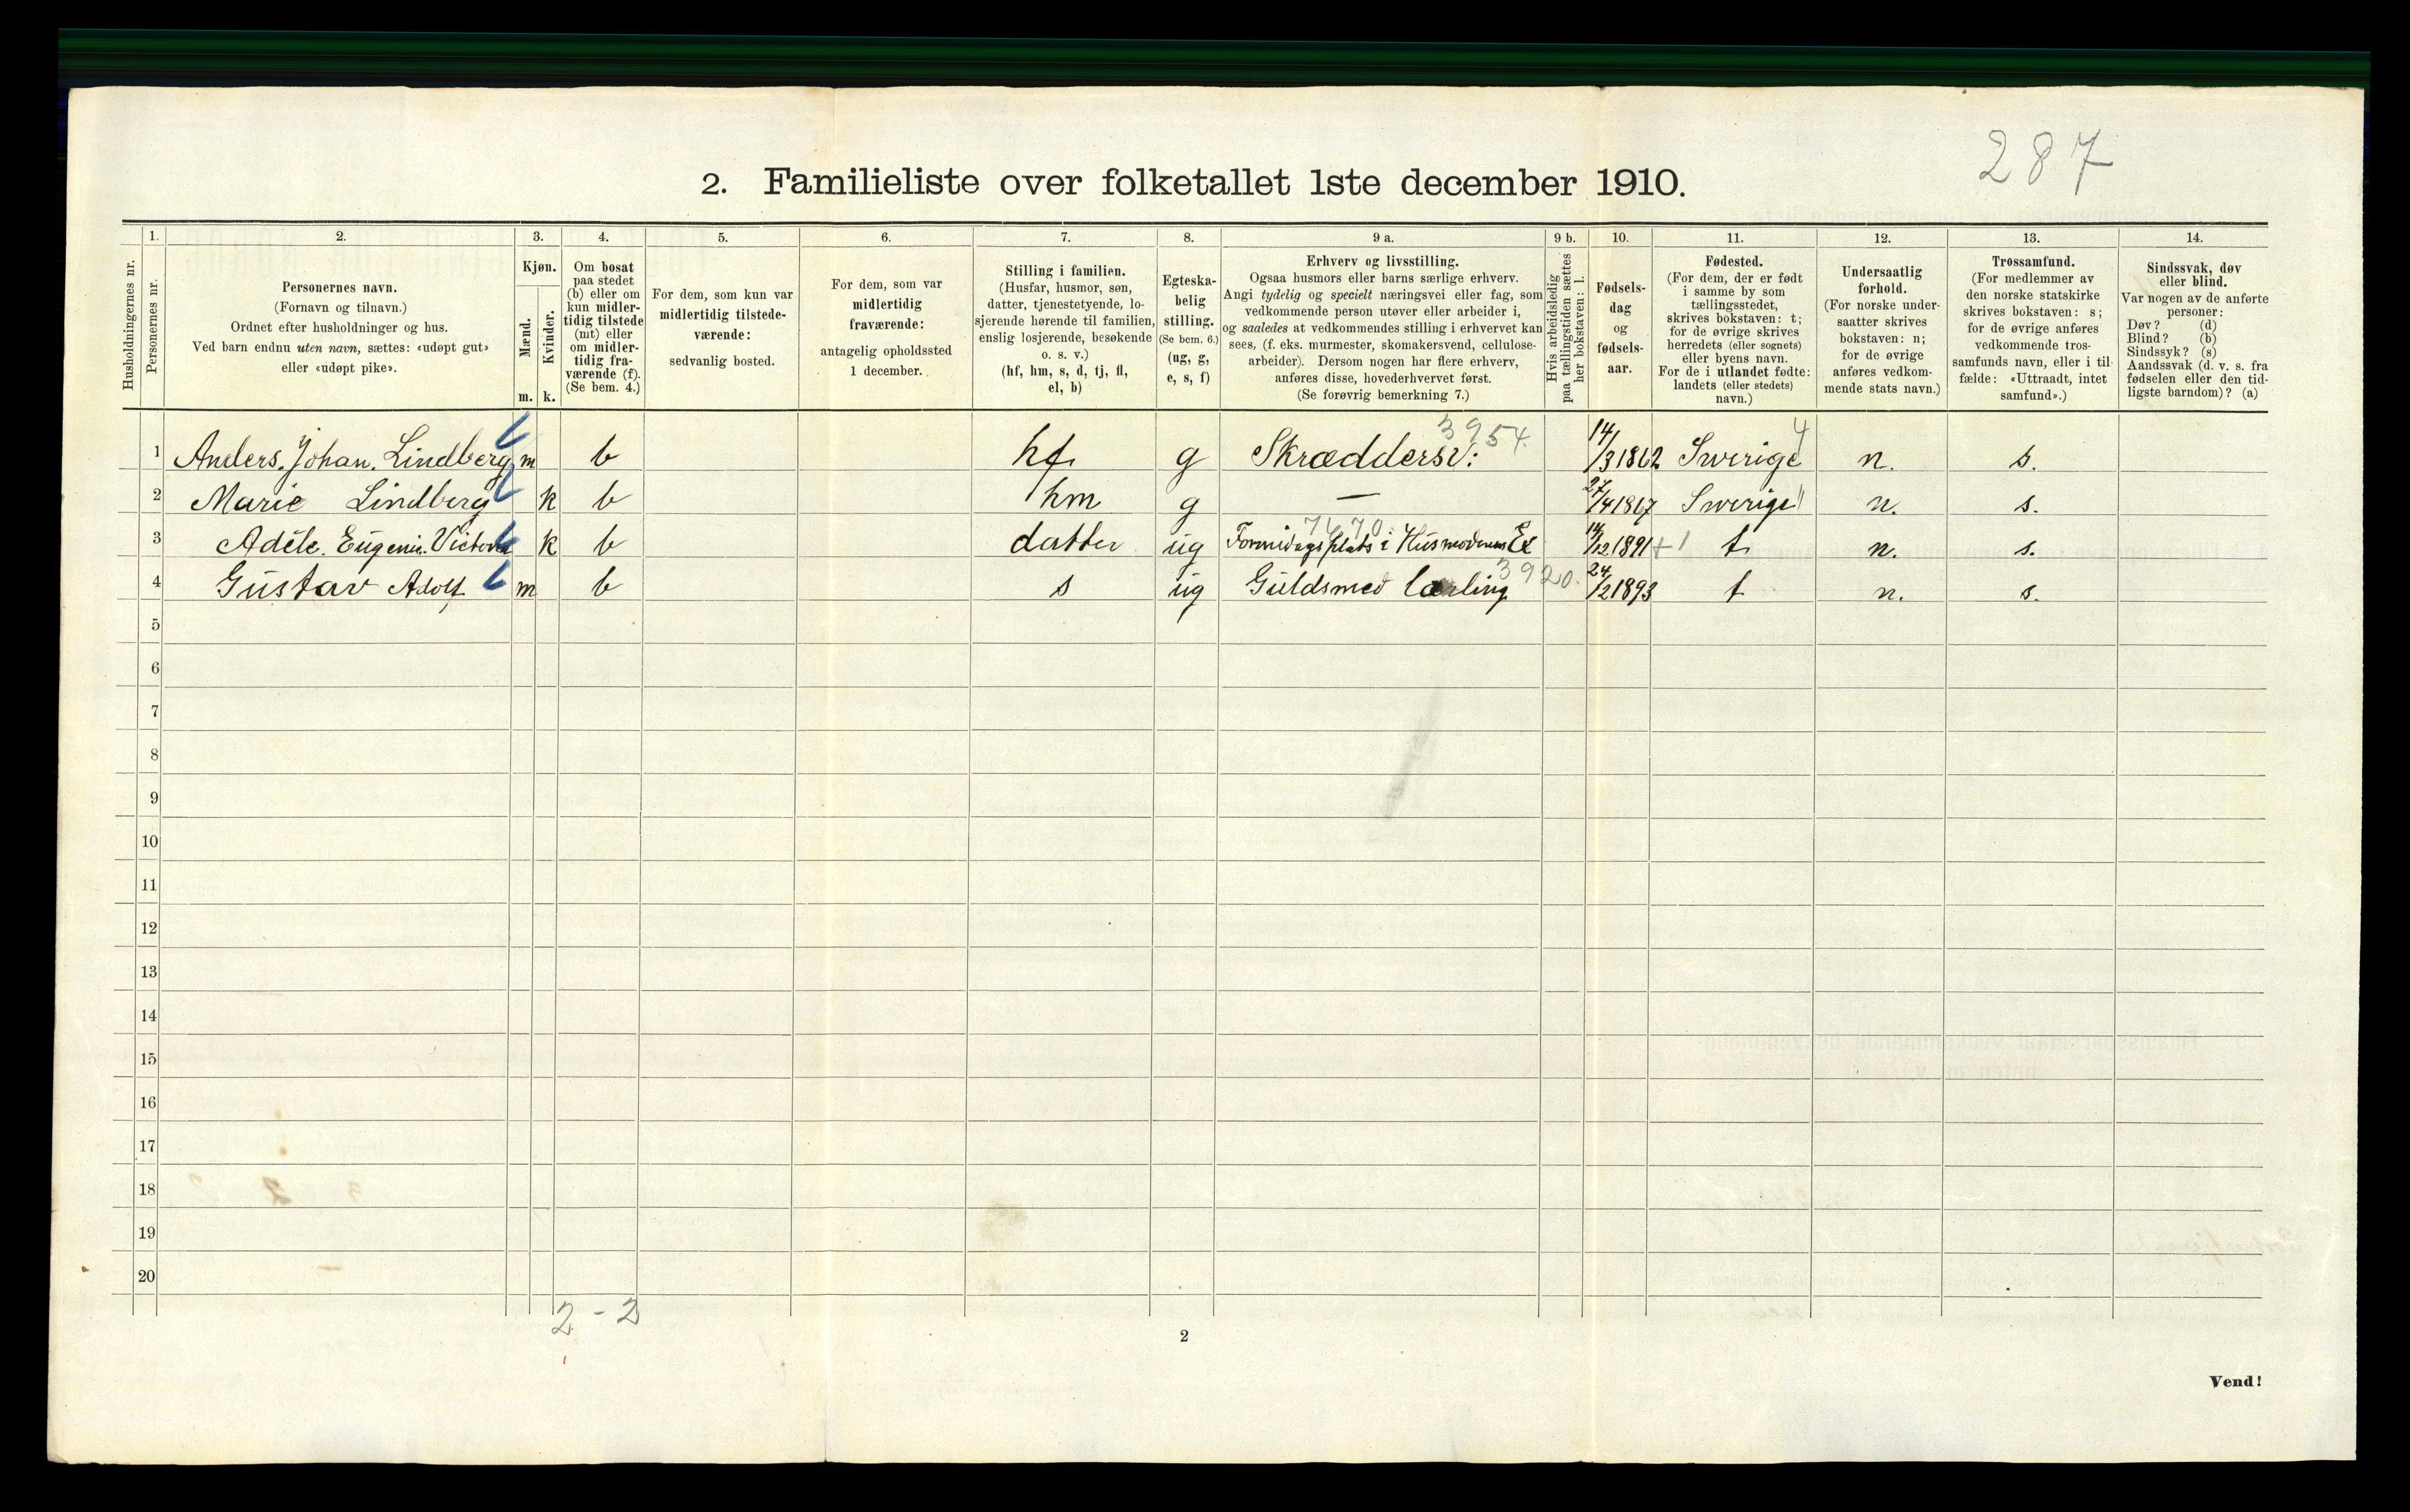 287
2. Familieliste over folketallet 1ste december 1910.
1. 2. 3. 4. 5. 6. 7. 8. 9 a. 9 b. 10. 11. 12. 13. 14.
Husholdningernes nr.
Personernes nr.
Personernes navn.
(Fornavn og tilnavn.)
Ordnet efter husholdninger og hus.
Ved barn endnu uten navn, sættes: «udøpt gut»
eller «udøpt pike».
Kjøn.
Mænd.
Kvinder.
m. k.
Om bosat
paa stedet
(b) eller om
kun midler-
tidig tilstede
(mt) eller
om midler-
tidig fra-
værende (f).
(Se bem. 4.)
For dem, som kun var
midlertidig tilstede-
værende:
sedvanlig bosted.
For dem, som var
midlertidig
fraværende:
antagelig opholdssted
1 december.
Stilling i familien.
(Husfar, husmor, søn,
datter, tjenestetyende, lo-
sjerende hørende til familien,
enslig losjerende, besøkende
o. s. v.)
(hf, hm, s, d, tj, fl,
el, b)
Egteska-
belig
stilling.
(Se bem. 6.)
(ug, g,
e, s, f)
Erhverv og livsstilling.
Ogsaa husmors eller barns særlige erhverv.
Angi tydelig og specielt næringsvei eller fag, som
vedkommende person utøver eller arbeider i,
og saaledes at vedkommendes stilling i erhvervet kan
sees, (f. eks. murmester, skomakersvend, cellulose-
arbeider). Dersom nogen har flere erhverv,
anføres disse, hovederhvervet først.
(Se forøvrig bemerkning 7.)
Hvis arbeidsledig
paa tællingstiden sættes
her bokstaven: l.
Fødsels-
dag
og
fødsels-
aar.
Fødested.
(For dem, der er født
i samme by som
tællingsstedet,
skrives bokstaven: t;
for de øvrige skrives
herredets (eller sognets)
eller byens navn.
For de i utlandet fødte:
landets (eller stedets)
navn.)
Undersaatlig
forhold.
(For norske under-
saatter skrives
bokstaven: n;
for de øvrige
anføres vedkom-
mende stats navn.)
Trossamfund.
(For medlemmer av
den norske statskirke
skrives bokstaven: s;
for de øvrige anføres
vedkommende tros-
samfunds navn, eller i til-
fælde: «Uttraadt, intet
samfund».)
Sindssvak, døv
eller blind.
Var nogen av de anførte
personer:
Døv? (d)
Blind? (b)
Sindssyk? (s)
Aandssvak (d. v. s. fra
fødselen eller den tid-
ligste barndom)? (a)
3954. 4
1 Anders. Johan. Lindberg m b hf g Skræddersv: 14/3 1862 Sverige n. s.
2 Marie Lindberg k b hm g — 27/4 1867 Sverige n. s.
3 Adèle. Eugenie. Victoria k b datter ug i Husmoderens 14/12 1891 +1 t n. s.
3920.
4 Gustav Adolf m b s ug Guldsmed lærling 24/2 1893 t n. s.
5
6
7
8
9
10
11
12
13
14
15
16
17
18
19
20
2 - 2
2
Vend!